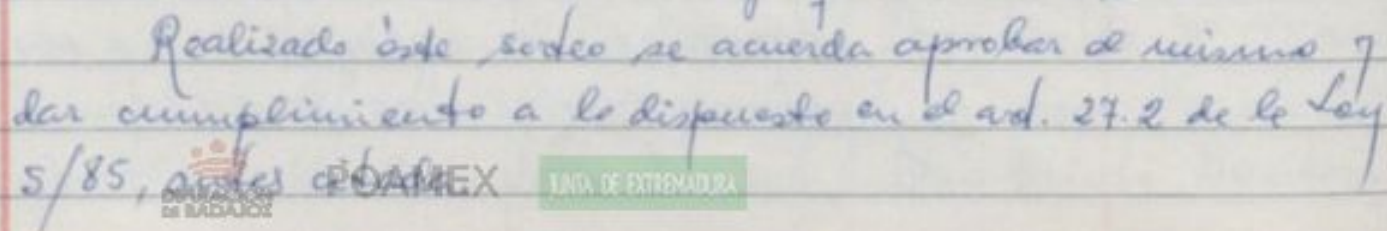 Realizado éste sorteo se acuerda aprobar el mismo y
dar cumplimiento a lo dispuesto en el art. 27.2 de la Ley
5/85, antes citada.
DIPUTACIÓN
DE BADAJOZ
POAMEX
JUNTA DE EXTREMADURA